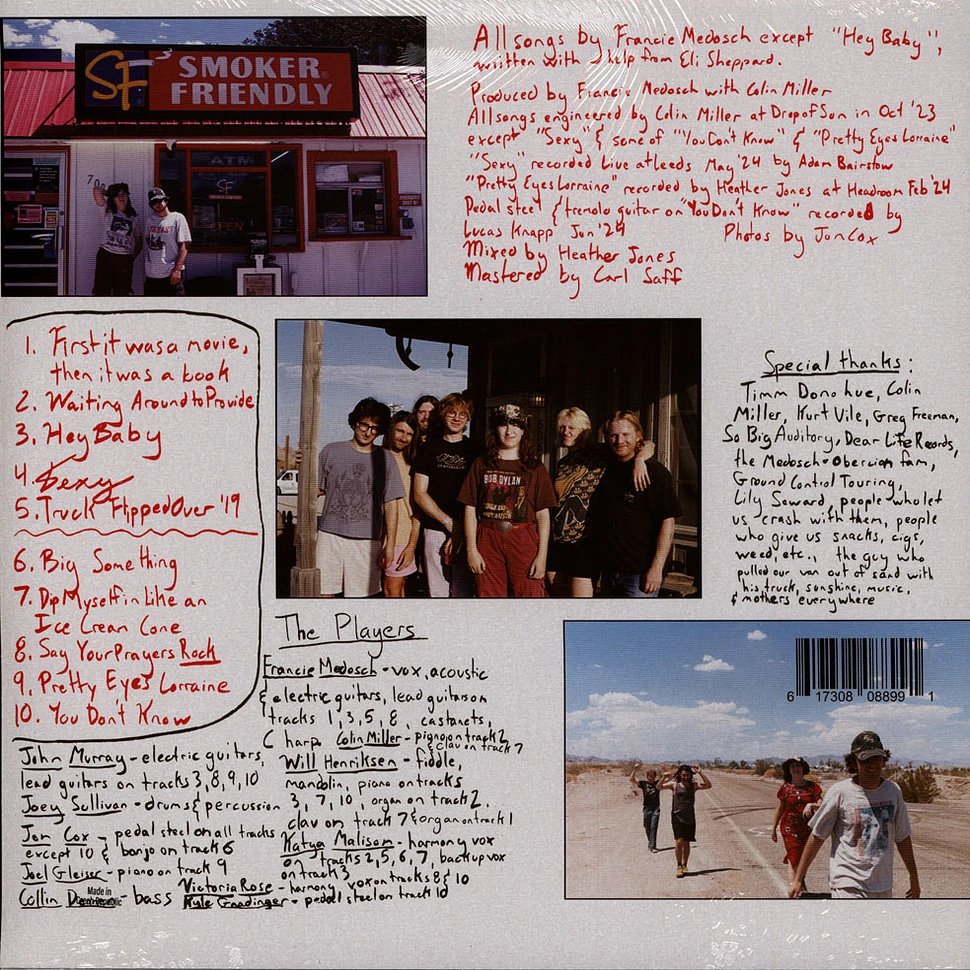 SF
SMOKER
FRIENDLY
ATM
SF
OPEN
All songs by Francie Medosch except "Hey Baby",
written with help from Eli Sheppard.
Produced by Francie Medosch with Colin Miller
All songs engineered by Colin Miller at Drop of Sun in Oct '23
except "Sexy" & some of "You Don't Know" & "Pretty Eyes Lorraine"
"Sexy" recorded live at Leeds May '24 by Adam Bairstow
"Pretty Eyes Lorraine" recorded by Heather Jones at Headroom Feb '24
Pedal steel & tremolo guitar on "You Don't Know" recorded by
Lucas Knapp Jun '24
Photos by Jon Cox
Mixed by Heather Jones
Mastered by Carl Saff
1. First it was a movie,
then it was a book
2. Waiting Around to Provide
3. Hey Baby
4. Sexy
5. Truck Flipped Over '19
6. Big Something
7. Dip Myself in Like an
Ice Cream Cone
8. Say Your Prayers Rock
9. Pretty Eyes Lorraine
10. You Don't Know
BOB DYLAN
Special thanks:
Timm Donohue, Colin
Miller, Kurt Vile, Greg Freeman,
So Big Auditory, Dear Life Records,
the Medosch-Obercian fam,
Ground Control Touring,
Lily Soward, people who let
us crash with them, people
who give us snacks, cigs,
weed, etc., the guy who
pulled our van out of sand with
his truck, sunshine, music,
& mothers everywhere
The Players
Francie Medosch - vox, acoustic
& electric guitars, lead guitars on
tracks 1, 3, 5, 8, castanets,
C harp Colin Miller - piano on track 2
& clav on track 7
Will Henriksen - fiddle,
mandolin, piano on tracks
3, 7, 10, organ on track 2.
clav on track 7 & organ on track 1
Katya Malison - harmony vox
on tracks 2, 5, 6, 7, backup vox
on track 3
Victoria Rose - harmony vox on tracks 8 & 10
Kyle - pedal steel on track 10
John Murray - electric guitars,
lead guitars on tracks 3, 8, 9, 10
Joey Sullivan - drums & percussion
Jon Cox - pedal steel on all tracks
except 10 & banjo on track 6
Joel Gleiser - piano on track 9
Collin - bass
Made in
Czech Republic
6 17308 08899 1